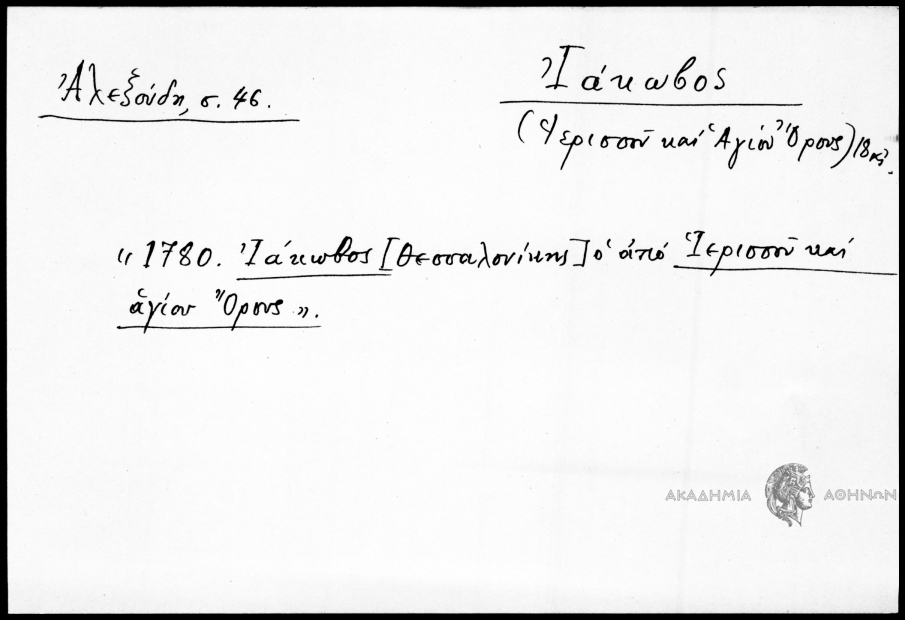 Ἀλεξούδη, σ. 46.
Ἰάκωβος
(Ἱερισσοῦ καὶ Ἁγίου Ὄρους) 18ος.
« 1780. Ἰάκωβος [Θεσσαλονίκης] ὁ ἀπό Ἱερισσοῦ καὶ
ἁγίου Ὄρους ».
ΑΚΑΔΗΜΙΑ ΑΘΗΝΩΝ